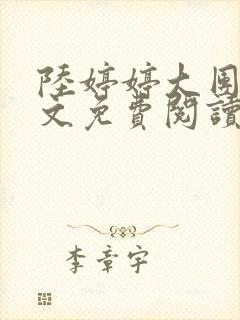 陸婷婷大團
文免費閱讀
李章宇